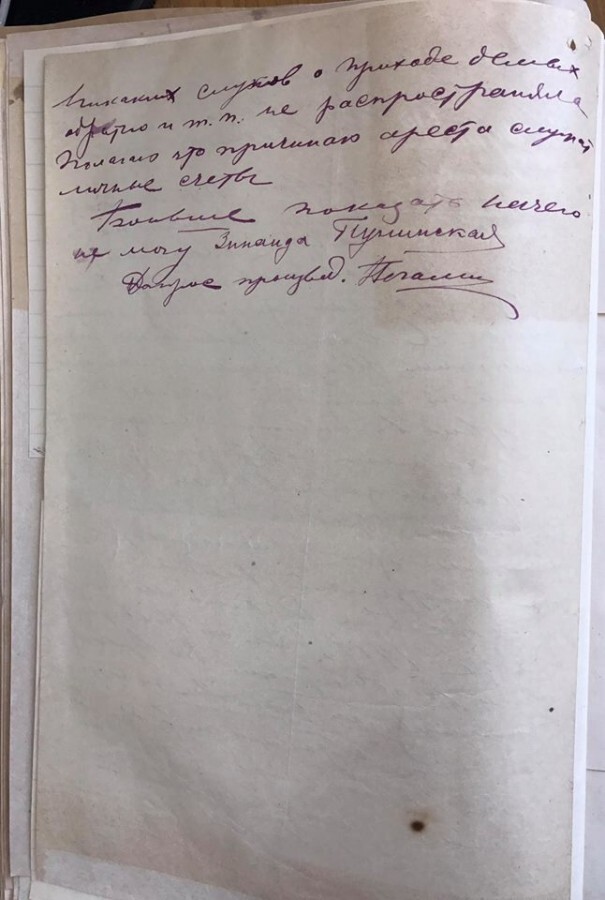 Никаких слухов о приходе белых
обратно и т.п. не распространяла
Полагаю что причиною ареста служат
личные счеты
Больше показать ничего
не могу Зинаида
Допрос произвед.